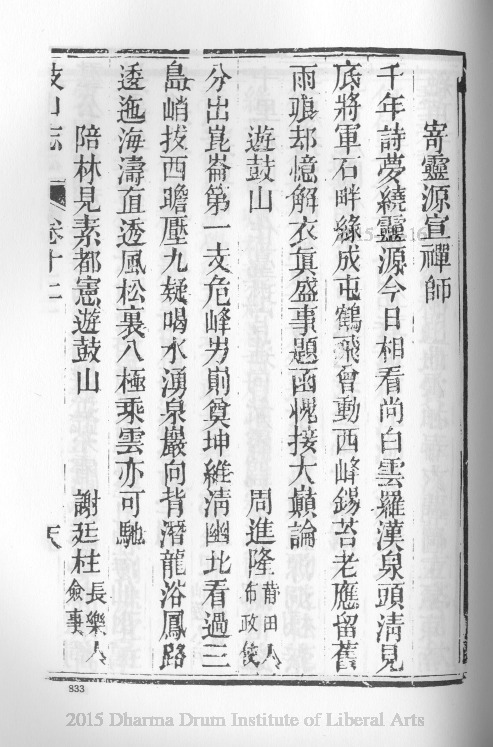 寄靈源宣禪師
千年詩夢繞靈源今日相看尚白雲羅漢泉頭淸見
底將軍石畔綠成屯鶴飛曾動西峰錫苔老應留舊
雨痕却憶解衣眞盛事題函愧接大顚論
遊鼓山 周進隆 莆田人布政使
分出崑崙第一支危峰屴崱奠坤維淸幽北看過三
島峭拔西瞻壓九疑喝水湧泉巖向背潛龍浴鳳路
逶迤海濤直透風松裏八極乘雲亦可馳
陪林見素都憲遊鼓山 謝廷柱 長樂人僉事
鼓山志 卷十二
833
2015 Dharma Drum Institute of Liberal Arts